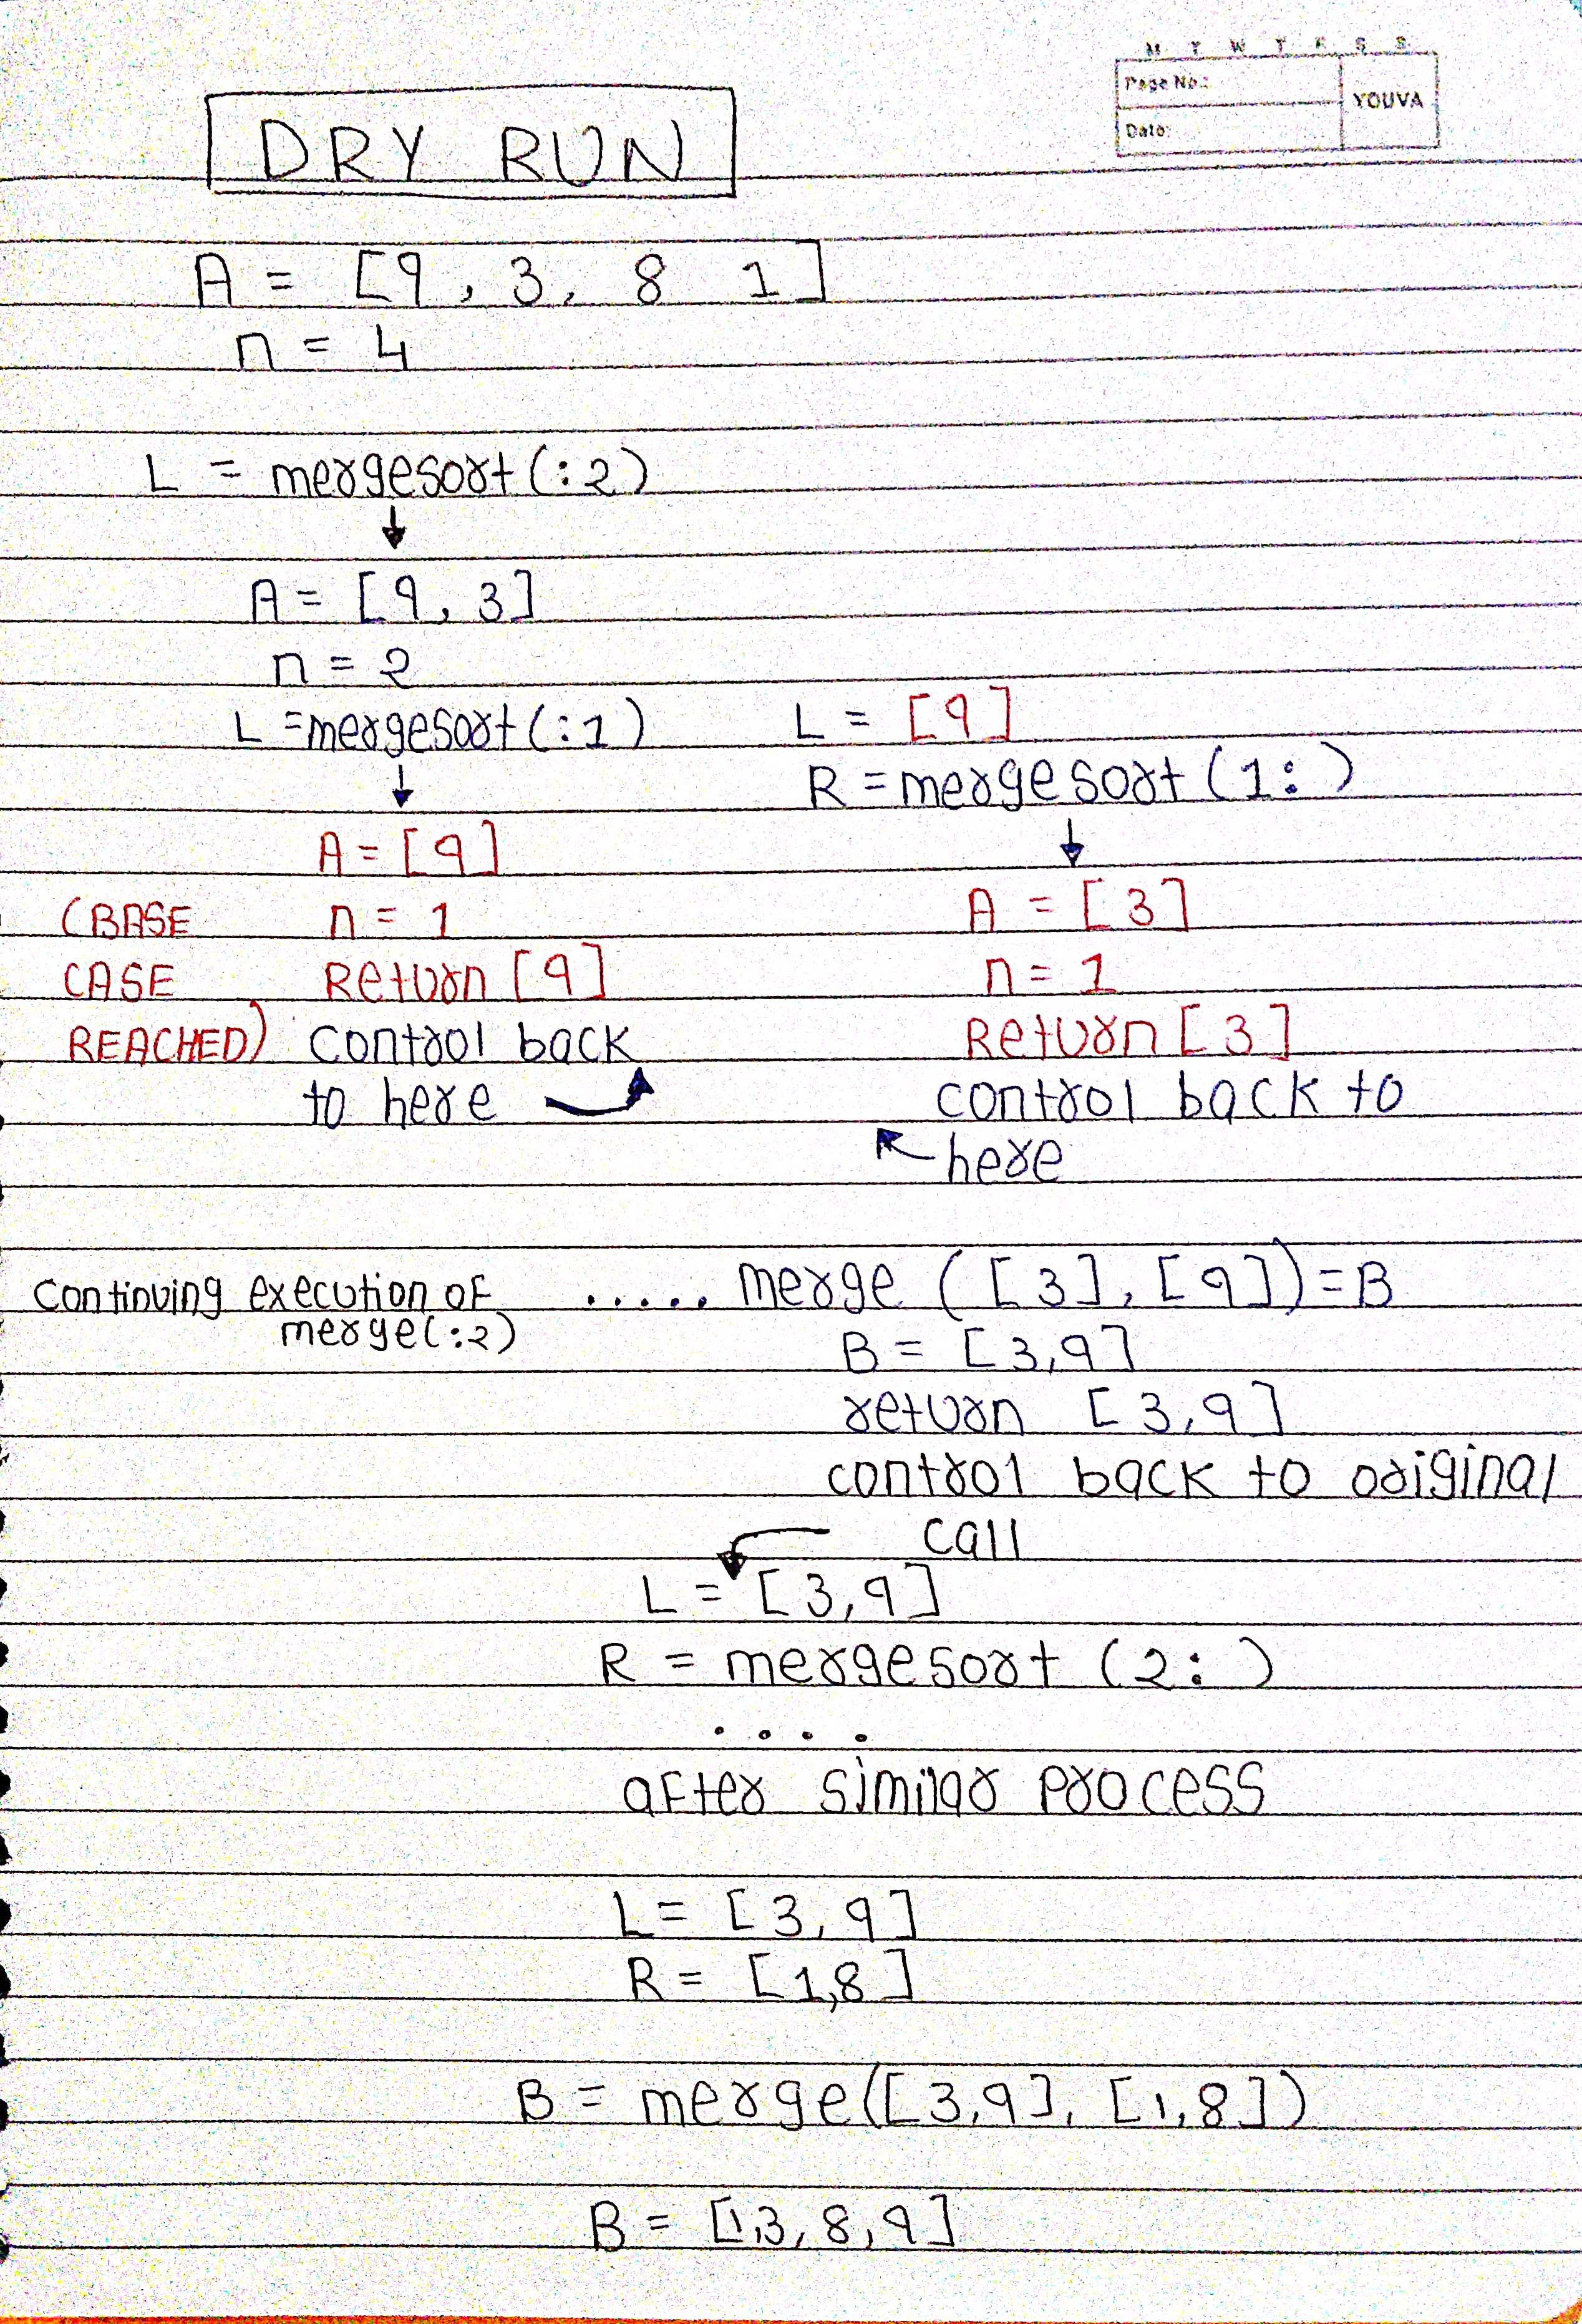 M T W T F S S
Page No.:
YOUVA
Date:
DRY RUN
A = [9, 3, 8 1]
n = 4
L = mergesort(:2)
↓
A = [9, 3]
n = 2
L = mergesort(:1)
↓
A = [9]
(BASE n = 1
CASE Return [9]
REACHED) control back
to here
L = [9]
R = mergesort(1:)
↓
A = [3]
n = 1
Return [3]
control back to
here
continuing execution of
merge(:2)
..... merge ([3], [9]) = B
B = [3,9]
return [3,9]
control back to original
call
L = [3,9]
R = mergesort (2:)
....
after similar process
L = [3,9]
R = [1,8]
B = merge([3,9], [1,8])
B = [1,3,8,9]